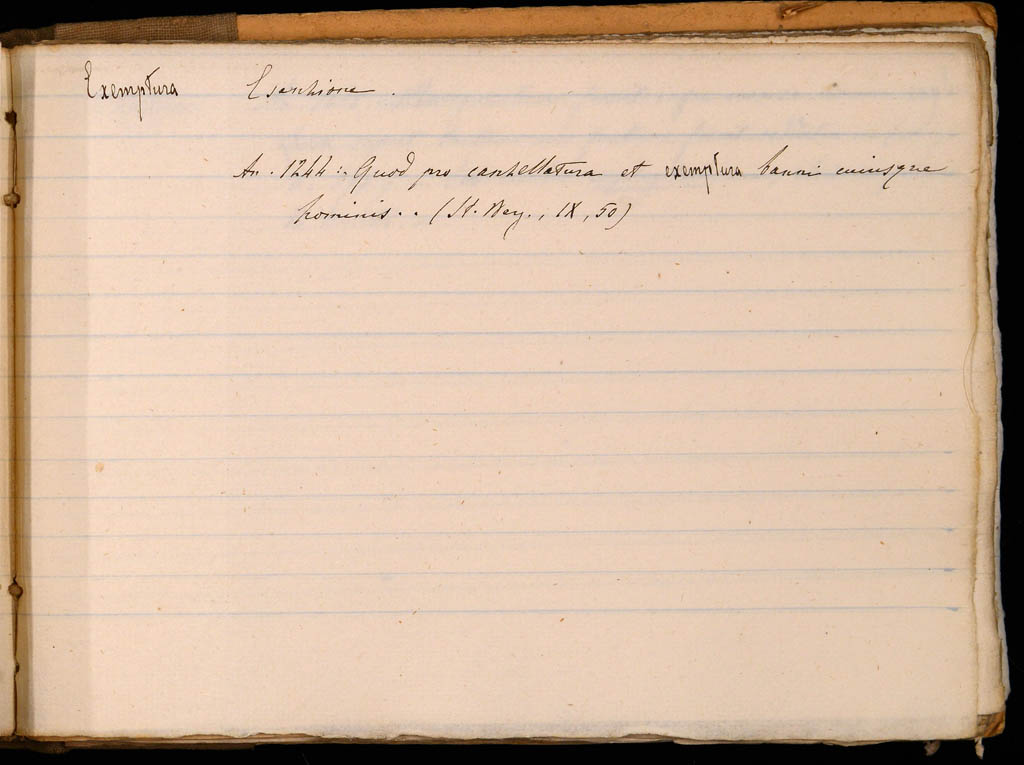 Exemptura Esenzione.
An. 1244:. Quod pro canzellatura et exemptura banni cuiusque
hominis.. (St. Reg., IX, 50)